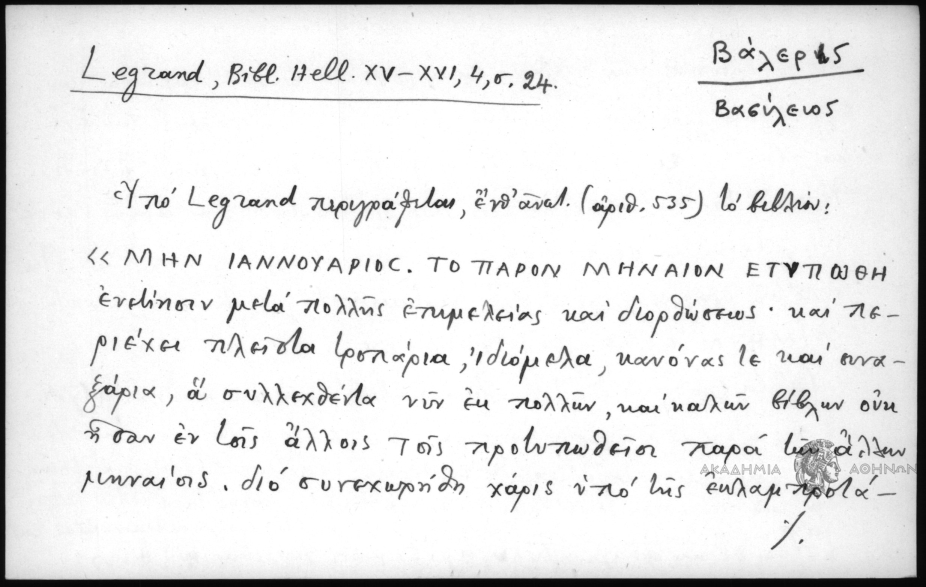 Legrand, Bibl. Hell. XV–XVI, 4, σ. 24.
Βάλερις
Βασίλειος
Ὑπό Legrand περιγράφεται, ἔνθ' ἀνωτ. (ἀριθ. 535) τό βιβλίον:
«ΜΗΝ ΙΑΝΝΟΥΑΡΙΟC. ΤΟ ΠΑΡΟΝ ΜΗΝΑΙΟΝ ΕΤΥΠΩΘΗ
ἐνετίησιν μετά πολλῆς ἐπιμελείας καί διορθώσεως· καί πε-
ριέχει πλεῖστα τροπάρια, ἰδιόμελα, κανόνας τε καί συνα-
ξάρια, ἅ συλλεχθέντα νῦν ἐκ πολλῶν, καί καλῶν βίβλων οὐκ
ἦσαν ἐν τοῖς ἄλλοις τοῖς προτυπωθεῖσι παρά τῶν ἄλλων
ΑΚΑΔΗΜΙΑ ΑΘΗΝΩΝ
μηναίοις. διό συνεχωρήθη χάρις ὑπό τῆς ἐκλαμπροτά-
./.